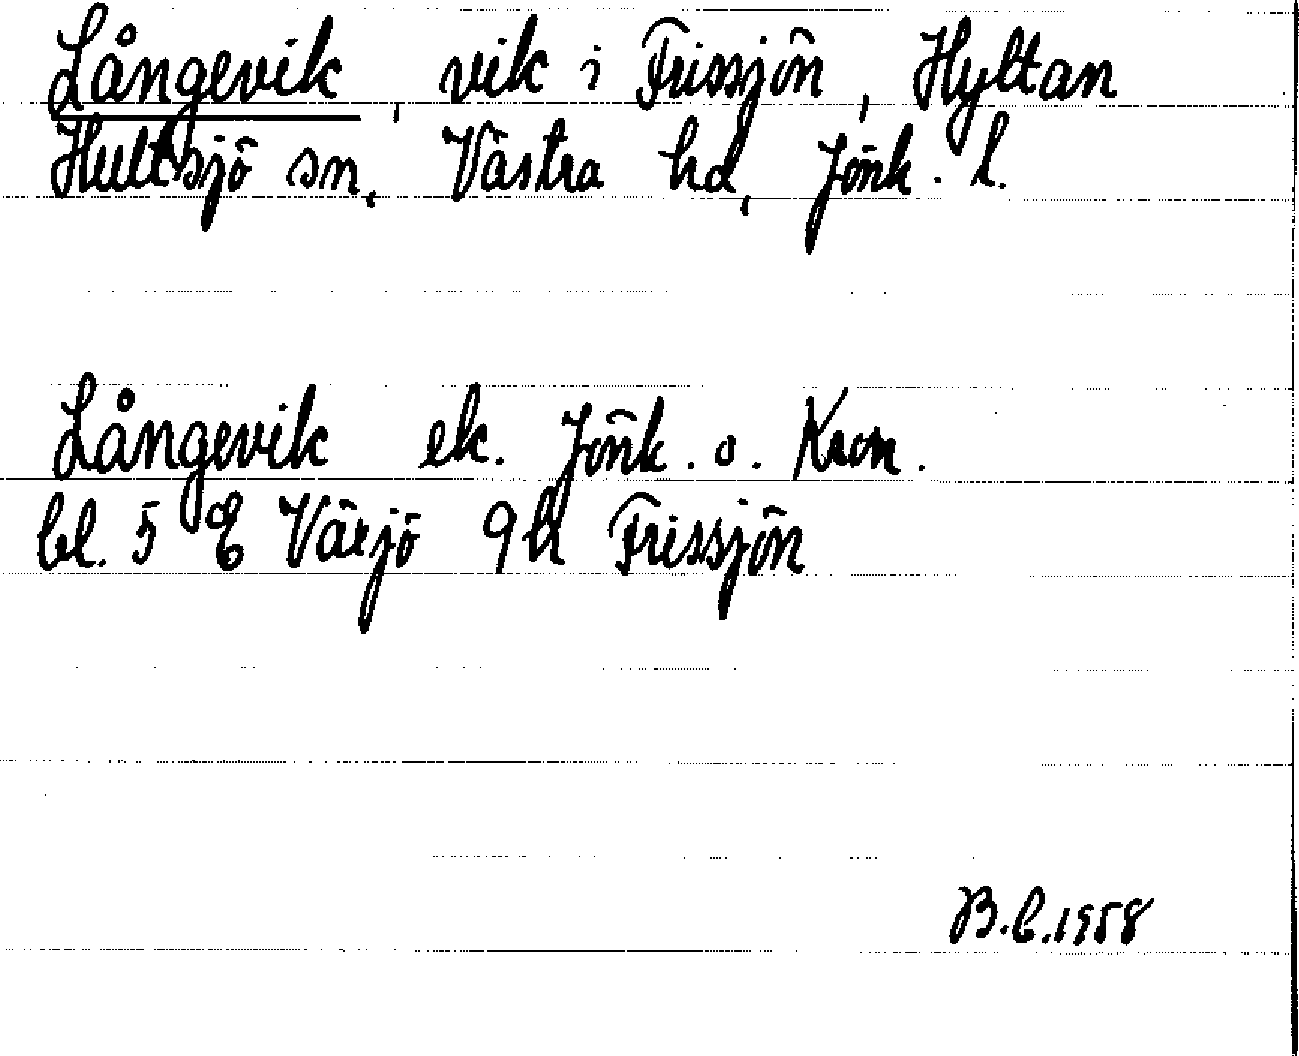 Långevik, vik i Frissjön, Hyltan
Hultsjö sn, Västra hd, Jönk. l.
Långevik ek. Jönk. o. Kron.
bl. 5 E Växjö 9h Frissjön
B.C.1958